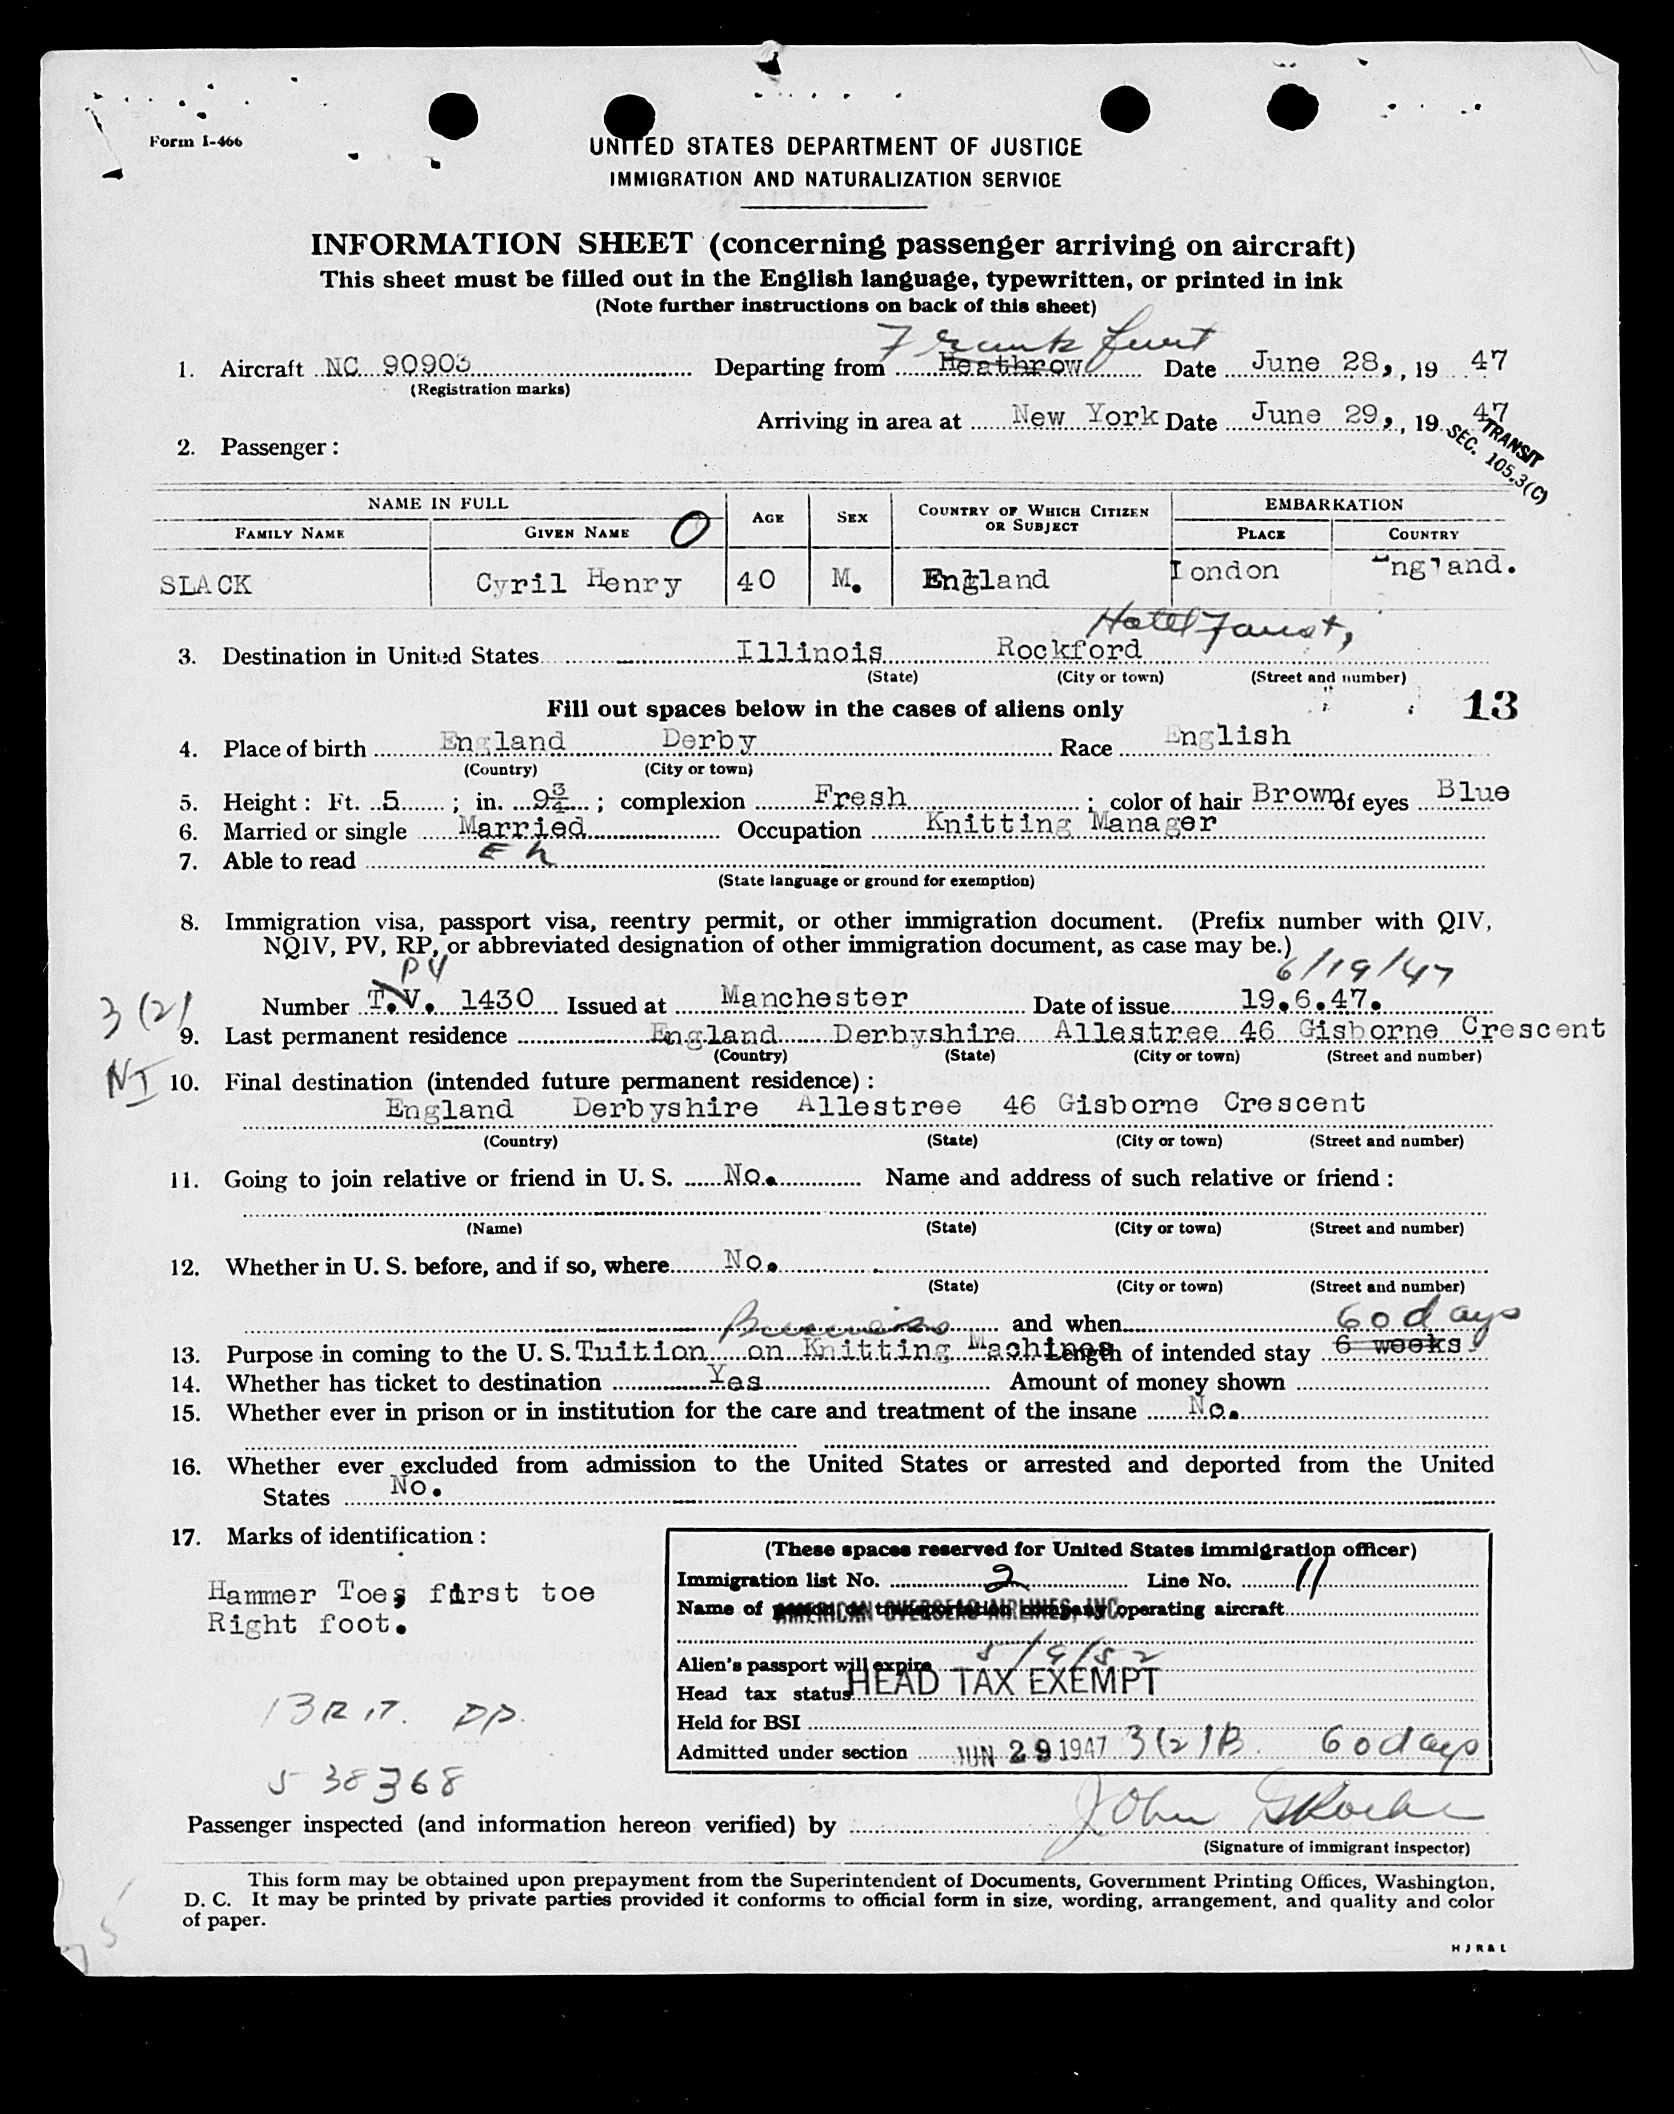 Form I-466
UNITED STATES DEPARTMENT OF JUSTICE
IMMIGRATION AND NATURALIZATION SERVICE
INFORMATION SHEET (concerning passenger arriving on aircraft)
This sheet must be filled out in the English language, typewritten, or printed in ink
(Note further instructions on back of this sheet)
Frankfurt
1. Aircraft NC 90903 Departing from Heathrow Date June 28, , 19 47
(Registration marks)
Arriving in area at New York Date June 29, , 19 47
TRANSIT
SEC. 105.3(C)
2. Passenger :
NAME IN FULL AGE SEX COUNTRY OF WHICH CITIZEN OR SUBJECT EMBARKATION
FAMILY NAME GIVEN NAME O PLACE COUNTRY
SLACK Cyril Henry 40 M. England London England.
Hotel Faust,
3. Destination in United States Illinois Rockford
(State) (City or town) (Street and number)
Fill out spaces below in the cases of aliens only 13
4. Place of birth England Derby Race English
(Country) (City or town)
5. Height : Ft. 5 ; in. 9¾ ; complexion Fresh ; color of hair Brown of eyes Blue
6. Married or single Married Occupation Knitting Manager
7. Able to read Eh
(State language or ground for exemption)
8. Immigration visa, passport visa, reentry permit, or other immigration document. (Prefix number with QIV,
NQIV, PV, RP, or abbreviated designation of other immigration document, as case may be.)
PV 6/19/47
3(2) Number T.V. 1430 Issued at Manchester Date of issue 19.6.47.
9. Last permanent residence England Derbyshire Allestree 46 Gisborne Crescent
(Country) (State) (City or town) (Street and number)
NI 10. Final destination (intended future permanent residence) :
England Derbyshire Allestree 46 Gisborne Crescent
(Country) (State) (City or town) (Street and number)
11. Going to join relative or friend in U. S. No. Name and address of such relative or friend :
(Name) (State) (City or town) (Street and number)
12. Whether in U. S. before, and if so, where No.
(State) (City or town) (Street and number)
Business and when 60 days
13. Purpose in coming to the U. S. Tuition on Knitting Machines Length of intended stay 6 weeks
14. Whether has ticket to destination Yes Amount of money shown
15. Whether ever in prison or in institution for the care and treatment of the insane No.
16. Whether ever excluded from admission to the United States or arrested and deported from the United
States No.
17. Marks of identification :
Hammer Toes, first toe
Right foot.
13 R 17. PP.
538368
(These spaces reserved for United States immigration officer)
Immigration list No. 2 Line No. 11
Name of person or transportation company operating aircraft
AMERICAN OVERSEAS AIRLINES, INC
Alien's passport will expire 5/9/52
Head tax status HEAD TAX EXEMPT
Held for BSI
Admitted under section JUN 29 1947 3(2)B. 60 days
Passenger inspected (and information hereon verified) by John
(Signature of immigrant inspector)
This form may be obtained upon prepayment from the Superintendent of Documents, Government Printing Offices, Washington,
D. C. It may be printed by private parties provided it conforms to official form in size, wording, arrangement, and quality and color
of paper.
H J R & L